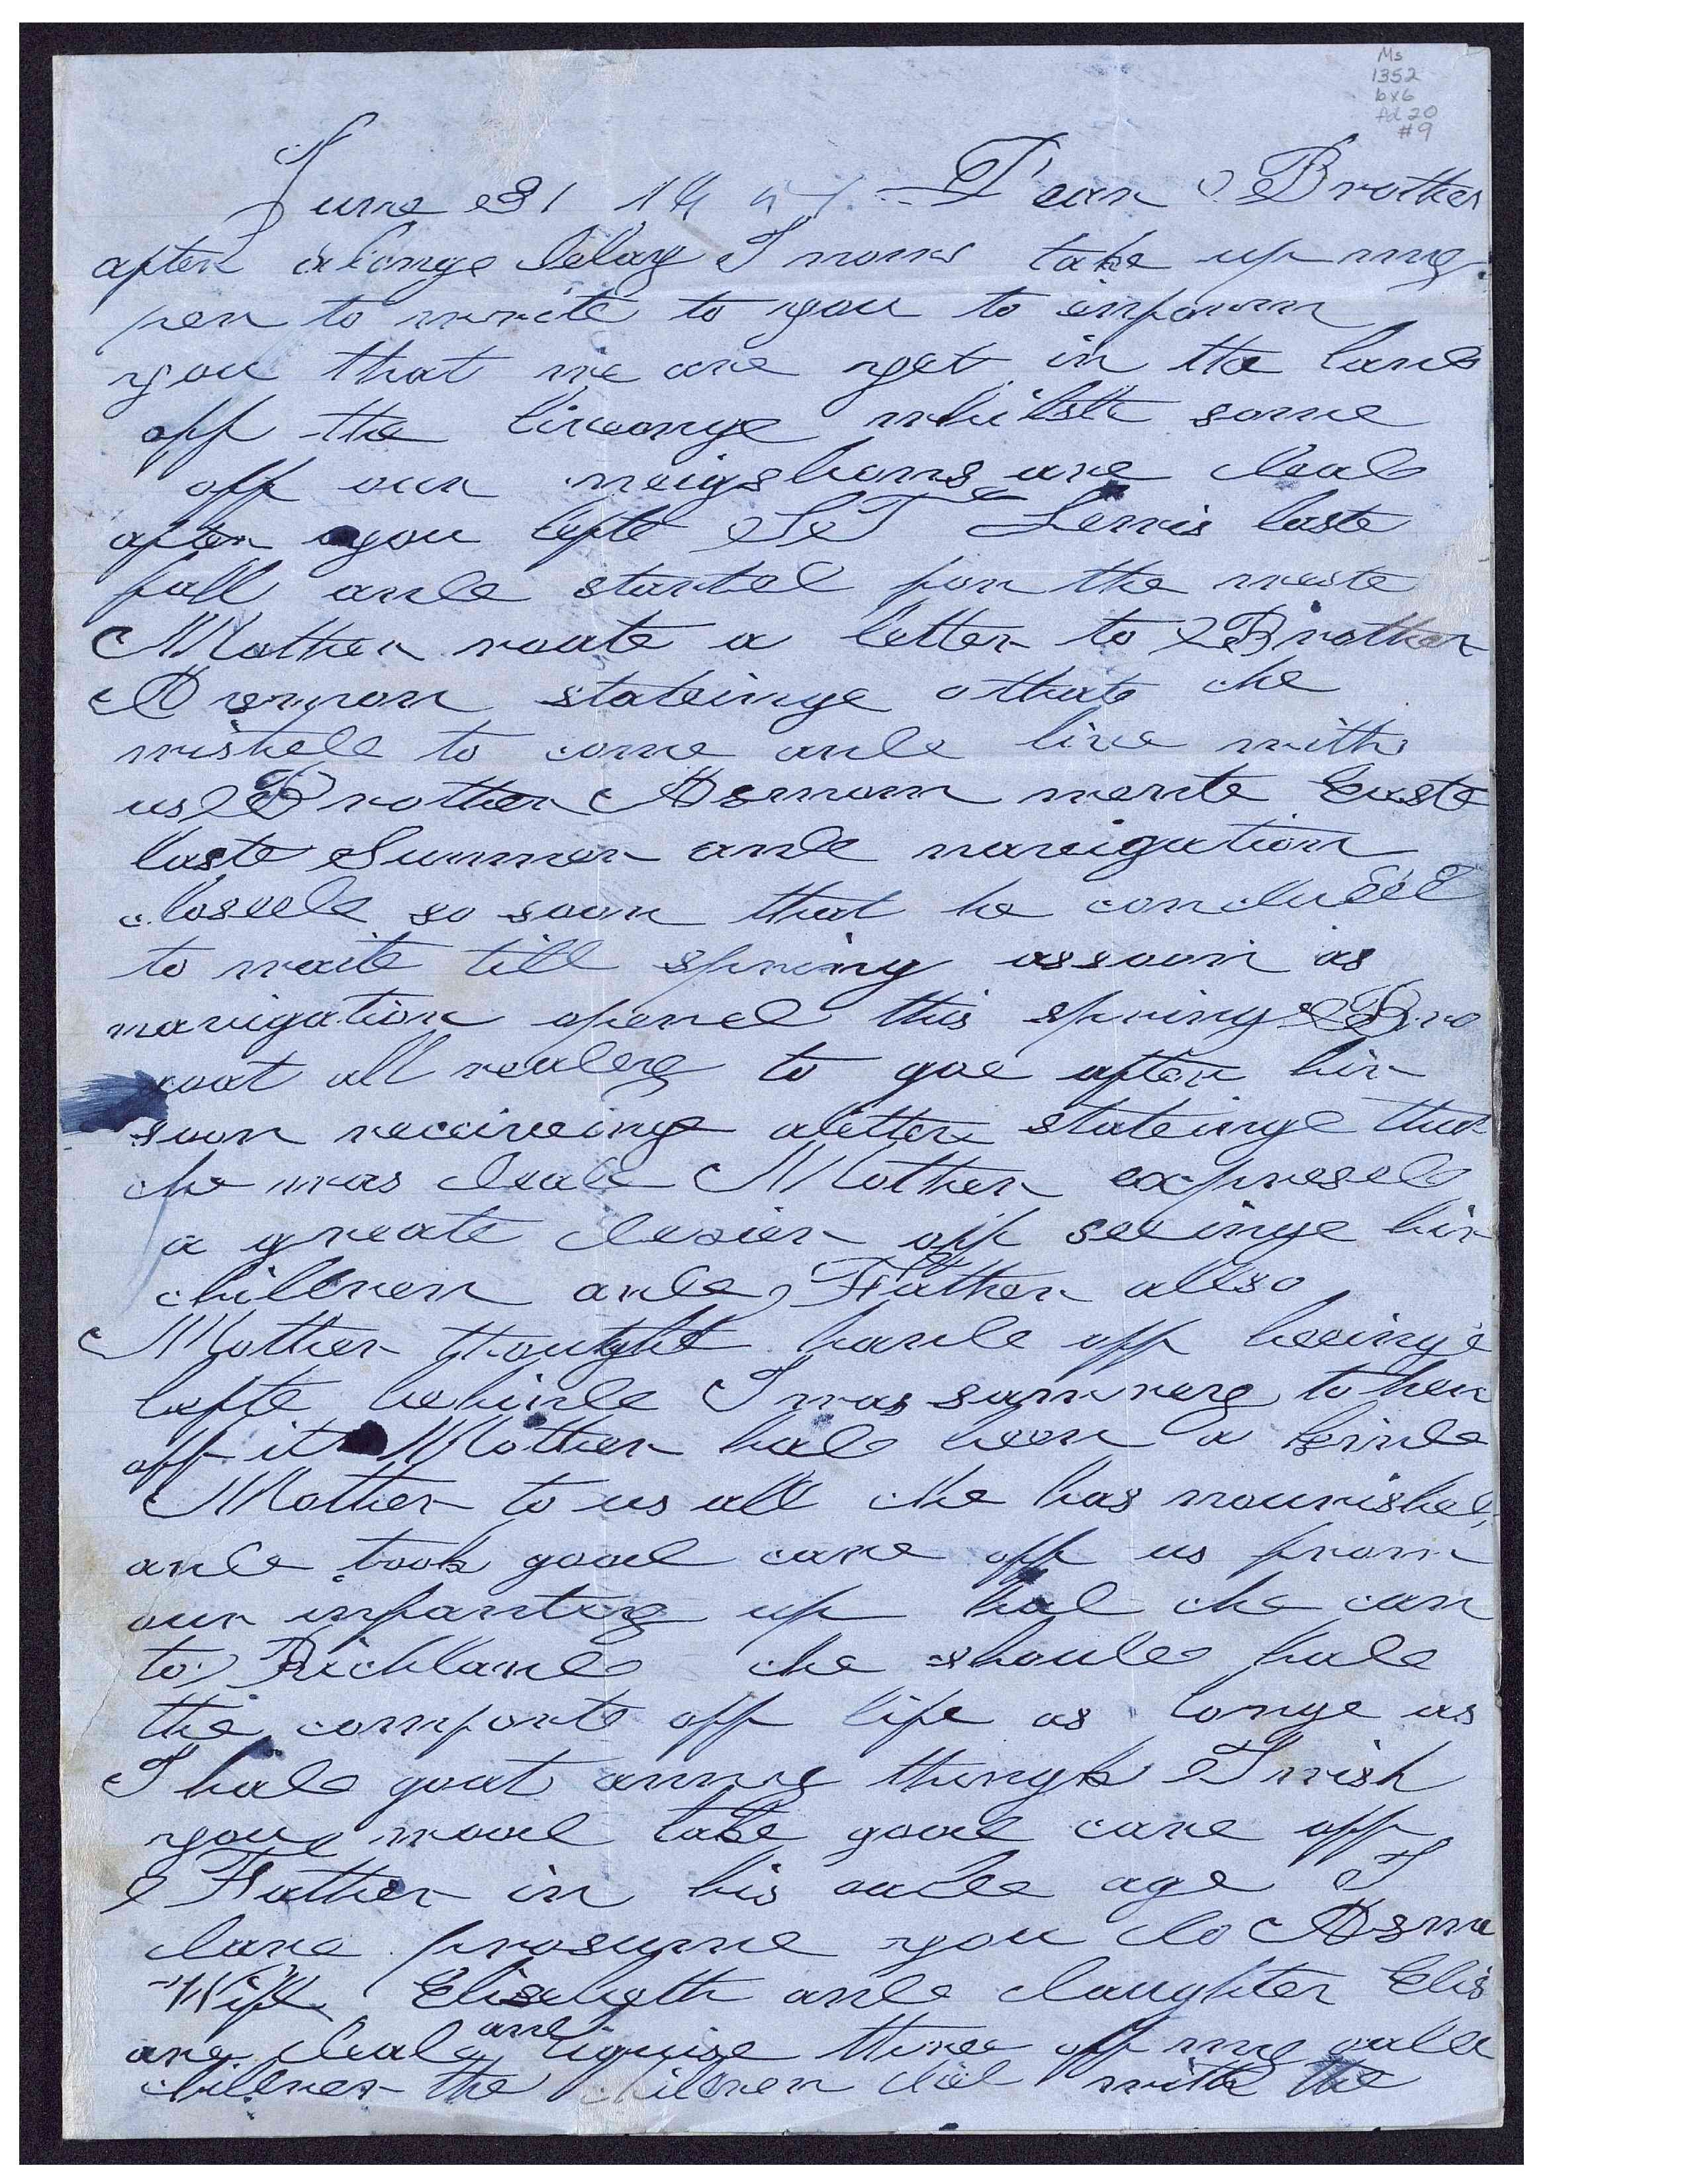 Ms
1352
bx6
fd 20
#9
June 31 18 Dear Brother
after alonge delay I now take up my
pen to write to you to inform
you that we are yet in the land
off the liveonge whilste some
off our neighbors are dead
after you lefte ST Lewis laste
fall and started for the weste
Mother roate a letter to Brother
stateinge that she
wished to come and live with
us Brother wente Easte
laste Summer and navigation
closed so soon that he concluded
to waite till spring assoon as
navigation opened this spring Bro
goat all ready to goe after hir
soon receiveinge aletter stateinge that
she was dead Mother expresed
a greate desier off seeinge hir
children and Father allso
Mother thought hard off beeinge
lefte behinde I was sorrey to hear
off it Mother had been a kinde
Mother to us all she has nourished
and took good care off us from
our infantcy up had she can
to Richland she should had
the comforte off life as longe as
I had goat anny thingk I wish
you wood take good care off
Father in his oald age I
dare presume you do
Wife Elisabeth and daughter Elis
are dead and liquise three off my oalde
children the children died with the